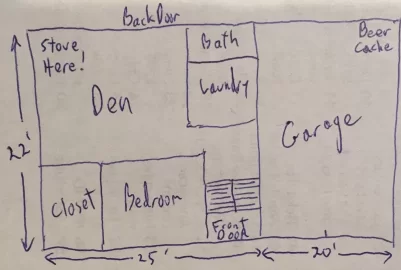 Back Door
Stove
Here!
Bath
Beer
Cache
Laundry
Den
Garage
22'
Closet
Bedroom
Front
Door
25'
20'